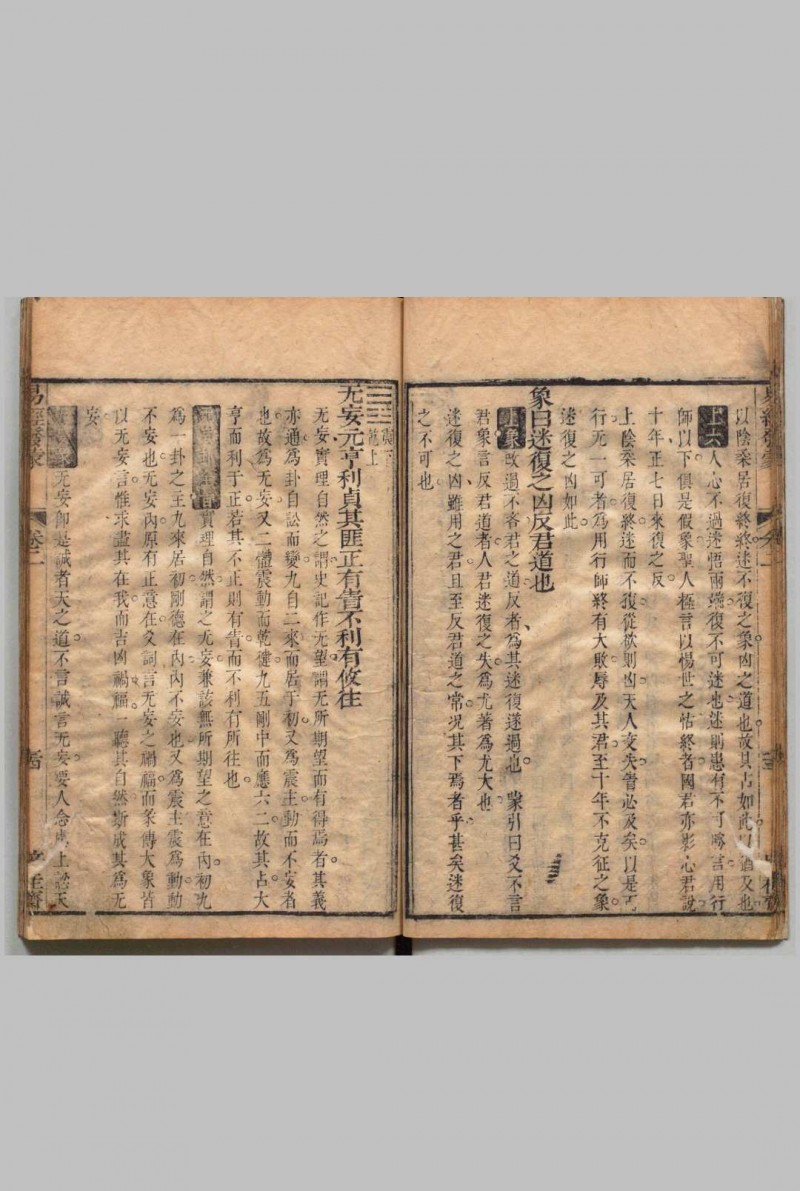 以陰柔居復終終迷不復之象凶之道也故其占如此以猶及也
上六人心不過迷悟兩端復不可迷也迷則患有不可勝言用行
師以下俱是假象聖人極言以惕世之怙終者國君亦影心君說
十年正七日來復之反
上陰柔居復終迷而不復從欲則凶天人交失眚必及矣以是而
行无一可者為用行師終有大敗辱及其君至十年不克征之象
迷復之凶如此
象曰迷復之凶反君道也
上象改過不吝君之道反者為其迷復遂過也 蒙引曰爻不言
君象言反君道者人君迷復之失為尤著為尤大也
迷復之凶雖用之君且至反君道之常况其下焉者乎甚矣迷復
之不可也
震下
乾上
无妄元亨利貞其匪正有眚不利有攸往
无妄實理自然之謂史記作无望謂无所期望而有得焉者其義
亦通為卦自訟而變九自二來而居于初又為震主動而不妄者
也故為无妄又二體震動而乾健九五剛中而應六二故其占大
亨而利于正若其不正則有眚而不利有所往也
實理自然謂之无妄兼該無所期望之意在內初九
為一卦之主九來居初剛德在內內不妄也又為震主震為動動
不妄也无妄內原有正意在爻詞言无妄之禍福而彖傳大象皆
以无妄言惟求盡其在我而吉凶禍福一聽其自然斯成其為无
妄
无妄卽是誠者天之道不言誠言无妄要人念慮上說天
易經
卷二